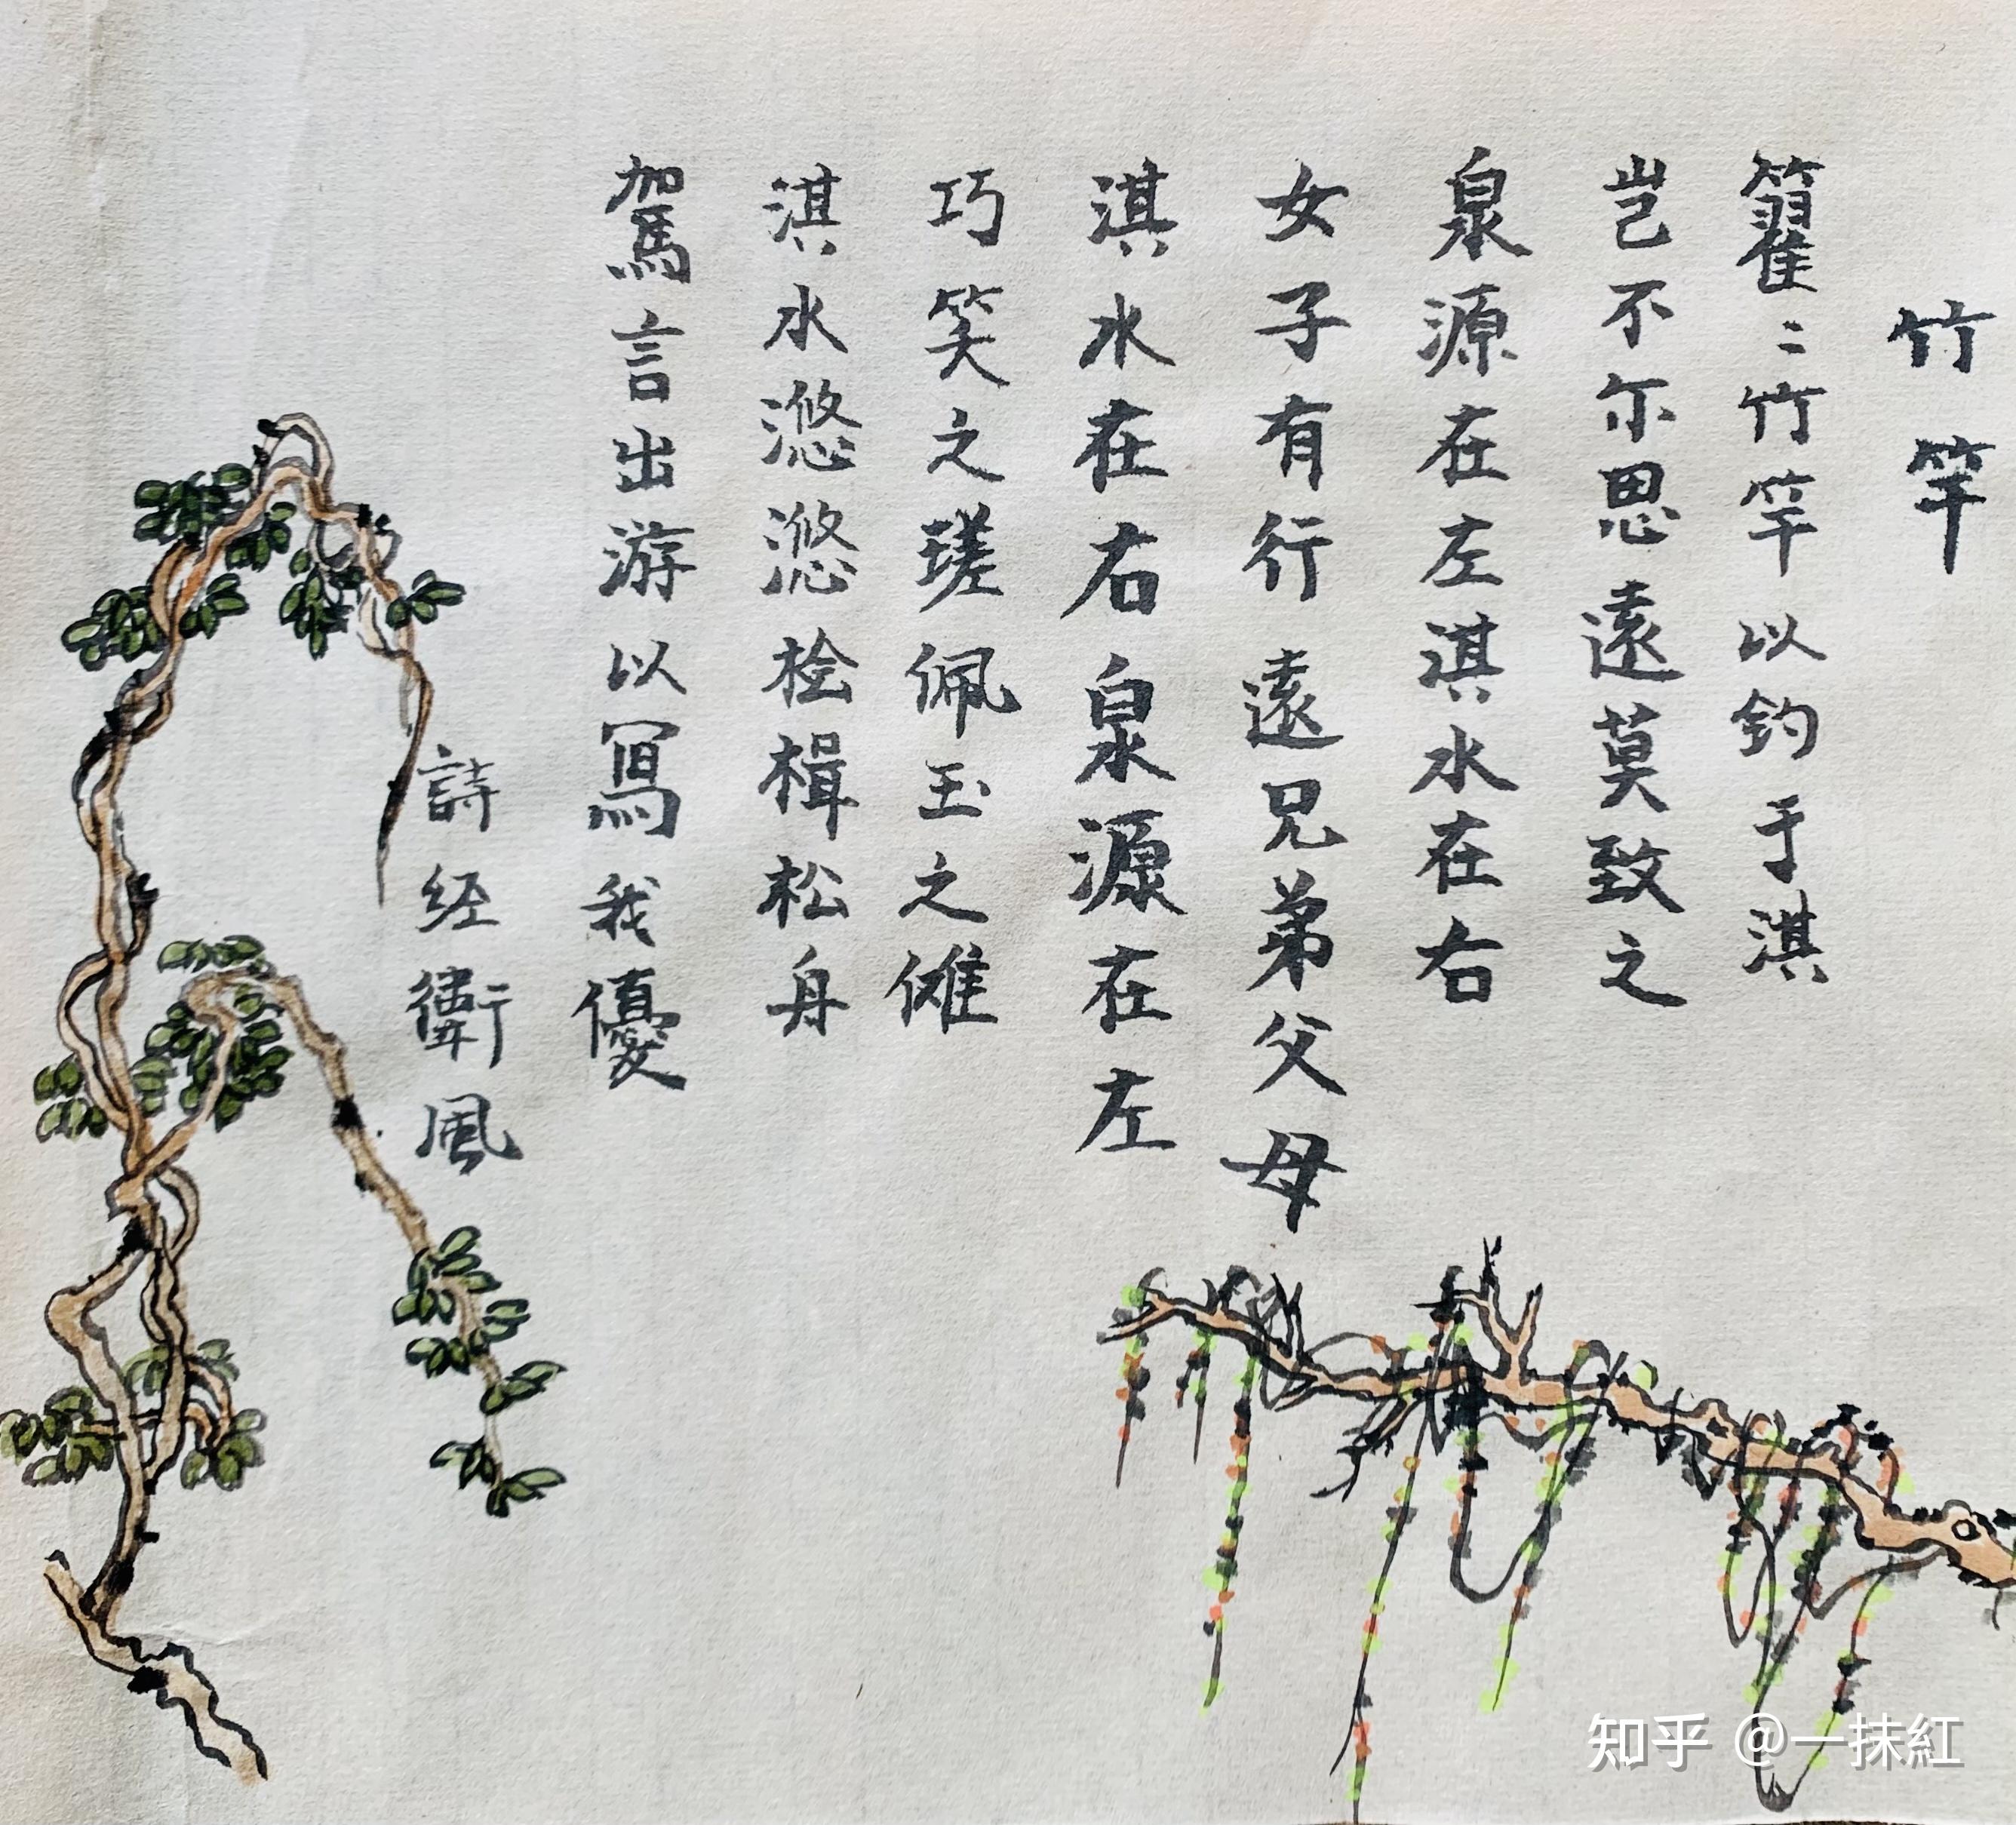 竹竿
籊〻竹竿以钓于淇
岂不尔思遠莫致之
泉源在左淇水在右
女子有行遠兄弟父母
淇水在右泉源在左
巧笑之瑳佩玉之傩
淇水滺滺桧楫松舟
駕言出游以寫我優
詩经衛風
知乎 @一抹紅